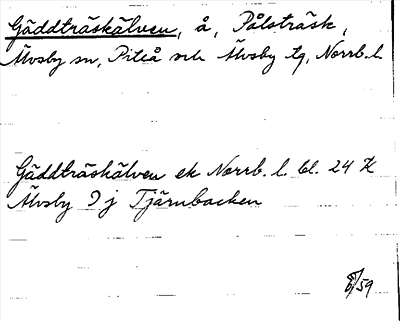 Gäddträskälven, å, Pålsträsk,
Älvsby sn, Piteå och Älvsby tg, Norrb. l.
Gäddträskälven ek Norrb. l. bl. 24
Älvsby 9 j Tjärnbacken
/59